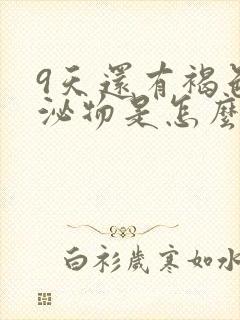 9天還有褐色
泌物是怎麼
白衫歲寒如水